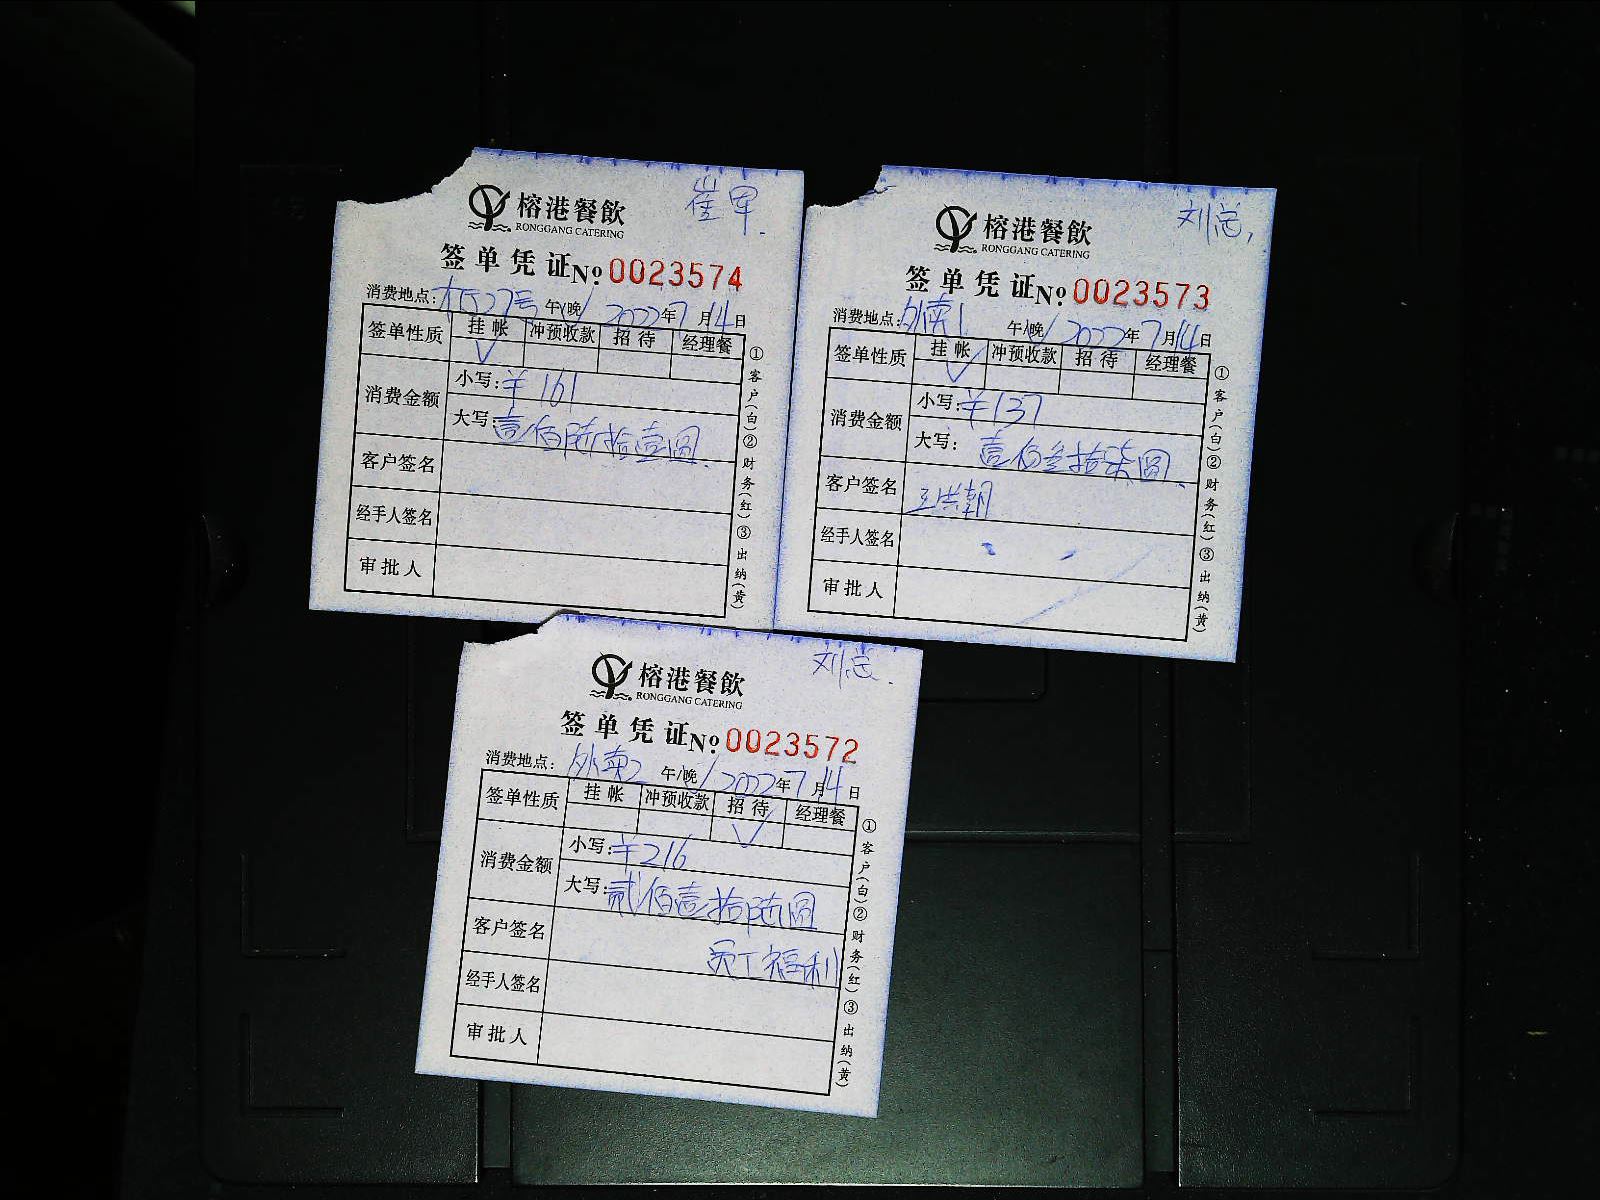 崔军.
榕港餐飲
RONGGANG CATERING
签单凭证 No 0023574
消费地点: 27号 午/晚/ 2022年7月14日
签单性质 挂帐 冲预收款 招待 经理餐
√
消费金额 小写: ¥161
大写: 壹佰陆拾壹圆.
客户签名
经手人签名
审批人
①客户(白)②财务(红)③出纳(黄)
刘总,
榕港餐飲
RONGGANG CATERING
签单凭证 No 0023573
消费地点: 外卖1 午/晚/ 2022年7月14日
签单性质 挂帐 冲预收款 招待 经理餐
√
消费金额 小写: ¥137
大写: 壹佰叁拾柒圆.
客户签名 王洪朝
经手人签名
审批人
①客户(白)②财务(红)③出纳(黄)
刘总.
榕港餐飲
RONGGANG CATERING
签单凭证 No 0023572
消费地点: 外卖2 午/晚/ 2022年7月14日
签单性质 挂帐 冲预收款 招待 经理餐
√
消费金额 小写: ¥216
大写: 贰佰壹拾陆圆
客户签名
员工福利
经手人签名
审批人
①客户(白)②财务(红)③出纳(黄)